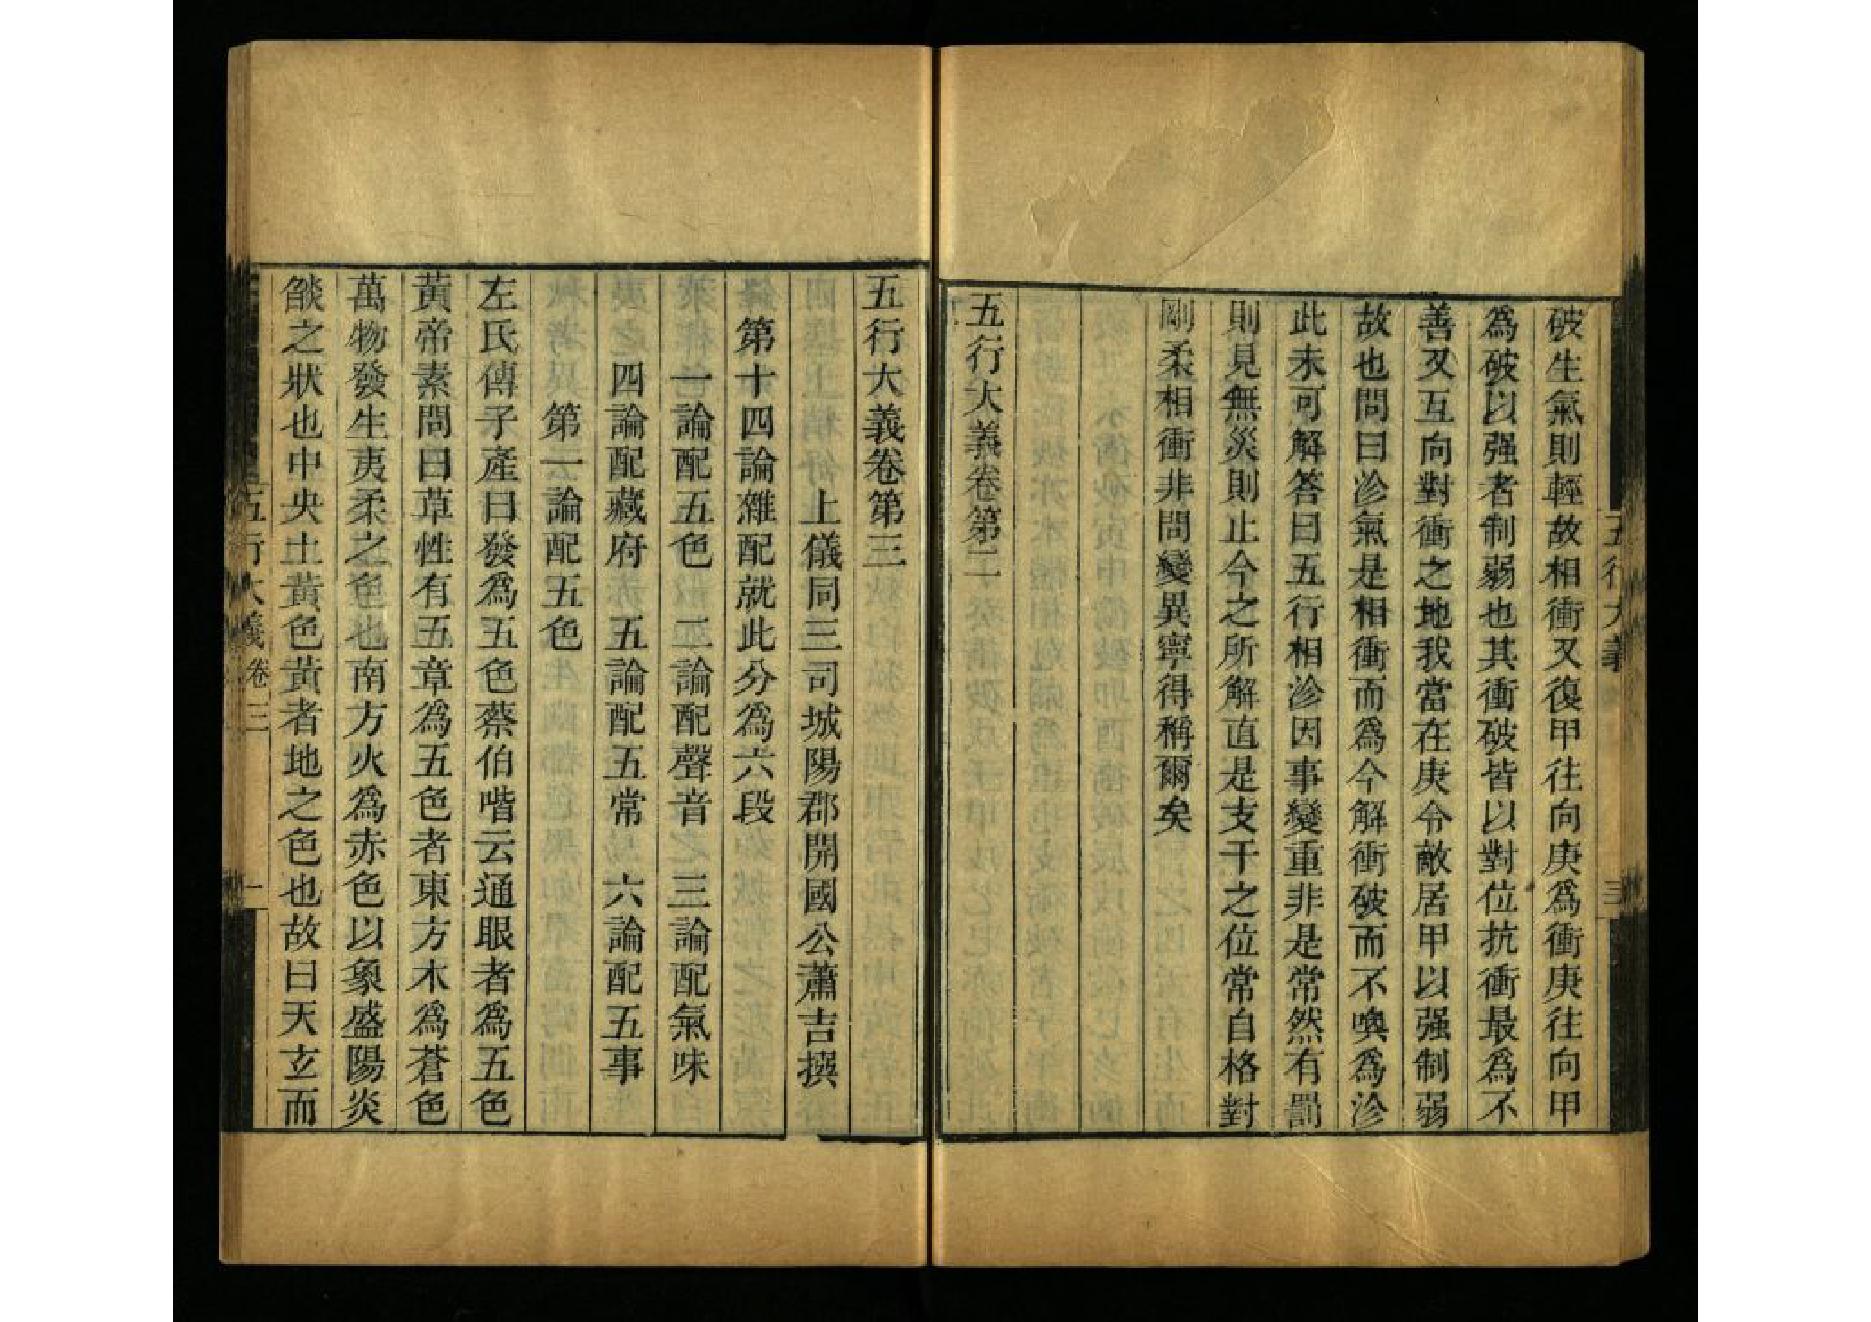 破生氣則輕故相衝又復甲往向庚爲衝庚往向甲
爲破以强者制弱也其衝破皆以對位抗衝最爲不
善又互向對衝之地我當在庚令敵居甲以强制弱
故也問曰沴氣是相衝而爲今解衝破而不喚爲沴
此未可解答曰五行相沴因事變重非是常然有罰
則見無災則止今之所解直是支干之位常自格對
剛柔相衝非問變異寧得稱爾矣
五行大義卷第二
五行大義
三
五行大義卷第三
上儀同三司城陽郡開國公蕭吉撰
第十四論雜配就此分爲六段
一論配五色 二論配聲音 三論配氣味
四論配藏府 五論配五常 六論配五事
第一論配五色
左氏傳子產曰發爲五色蔡伯喈云通眼者爲五色
黃帝素問曰草性有五章爲五色者東方木爲蒼色
萬物發生夷柔之色也南方火爲赤色以象盛陽炎
燄之狀也中央土黃色黃者地之色也故曰天玄而
五行大義卷三
一